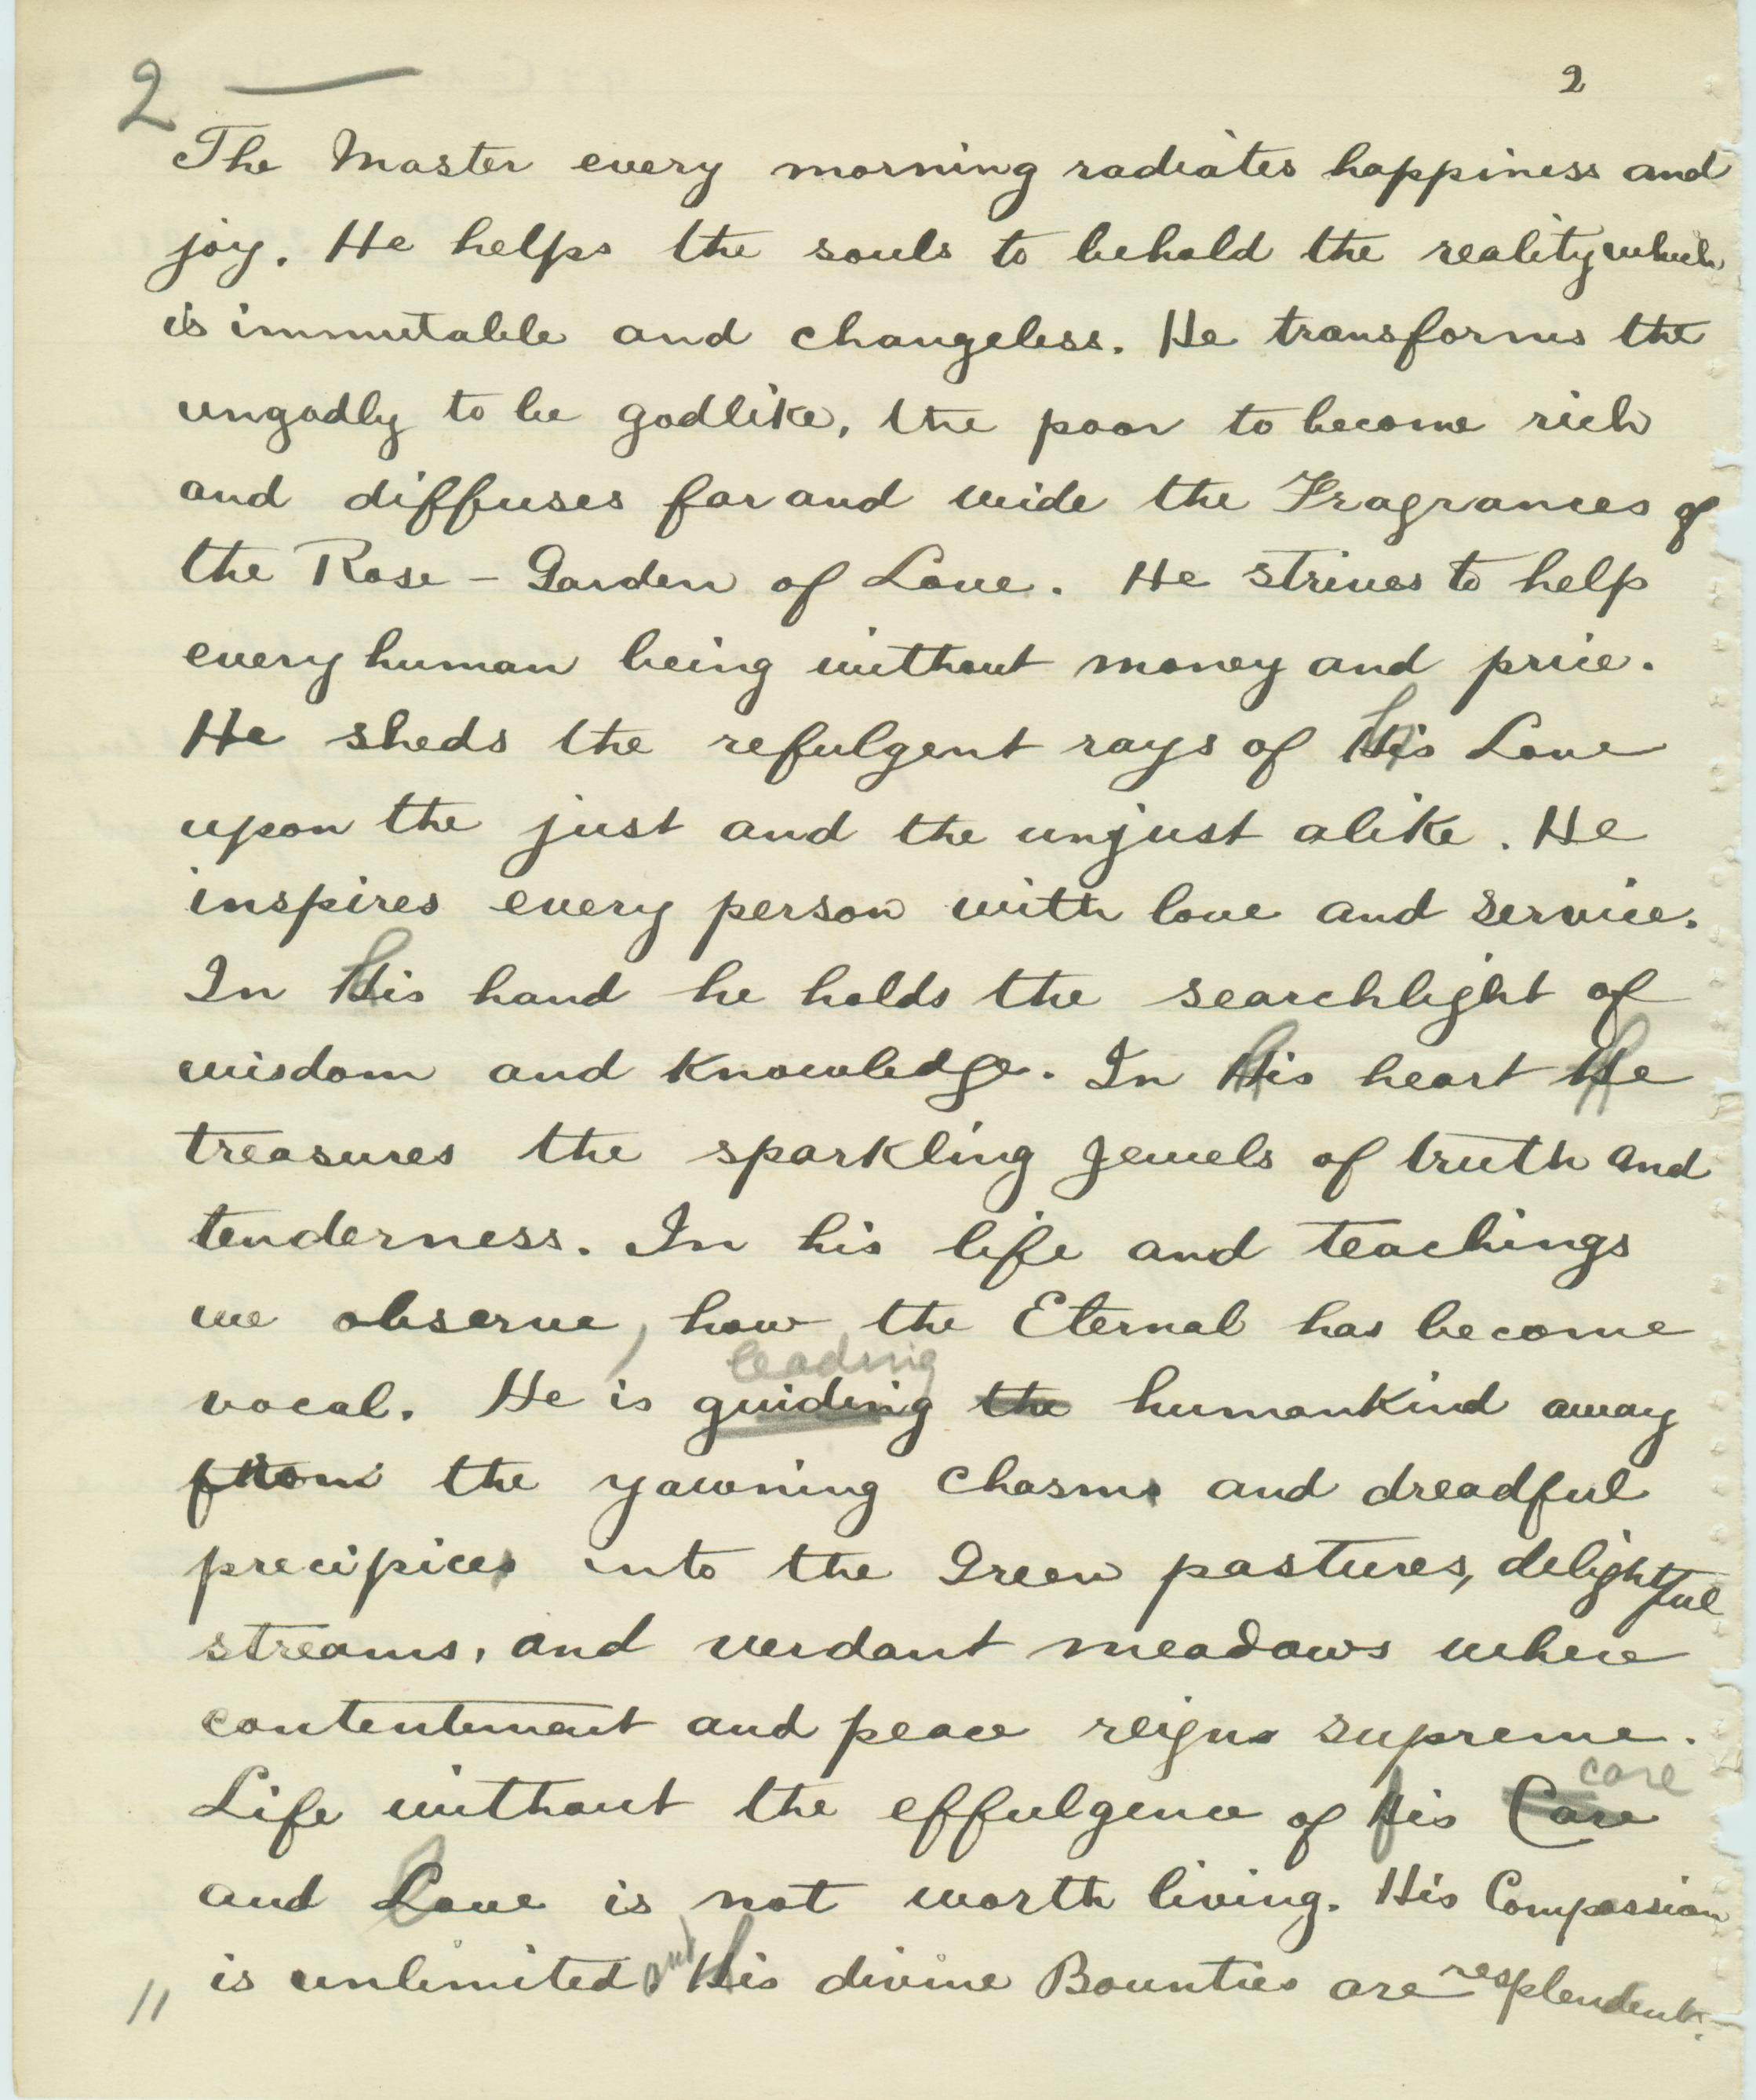 2 — 2
The Master every morning radiates happiness and
joy. He helps the souls to behold the reality which
is immutable and changeless. He transforms the
ungodly to be godlike, the poor to become rich
and diffuses far and wide the Fragrances of
the Rose-Garden of Love. He strives to help
every human being without money and price.
He sheds the refulgent rays of his Love
upon the just and the unjust alike. He
inspires every person with love and service.
In his hand he holds the searchlight of
wisdom and knowledge. In his heart he
treasures the sparkling jewels of truth and
tenderness. In his life and teachings
we observe, how the Eternal has become
leading
vocal. He is guiding the humankind away
from the yawning chasms and dreadful
precipices into the Green pastures, delightful
streams, and verdant meadows where
contentment and peace reigns supreme.
care
Life without the effulgence of his Care
and love is not worth living. His Compassion
is unlimited and his divine Bounties are resplendent.
//